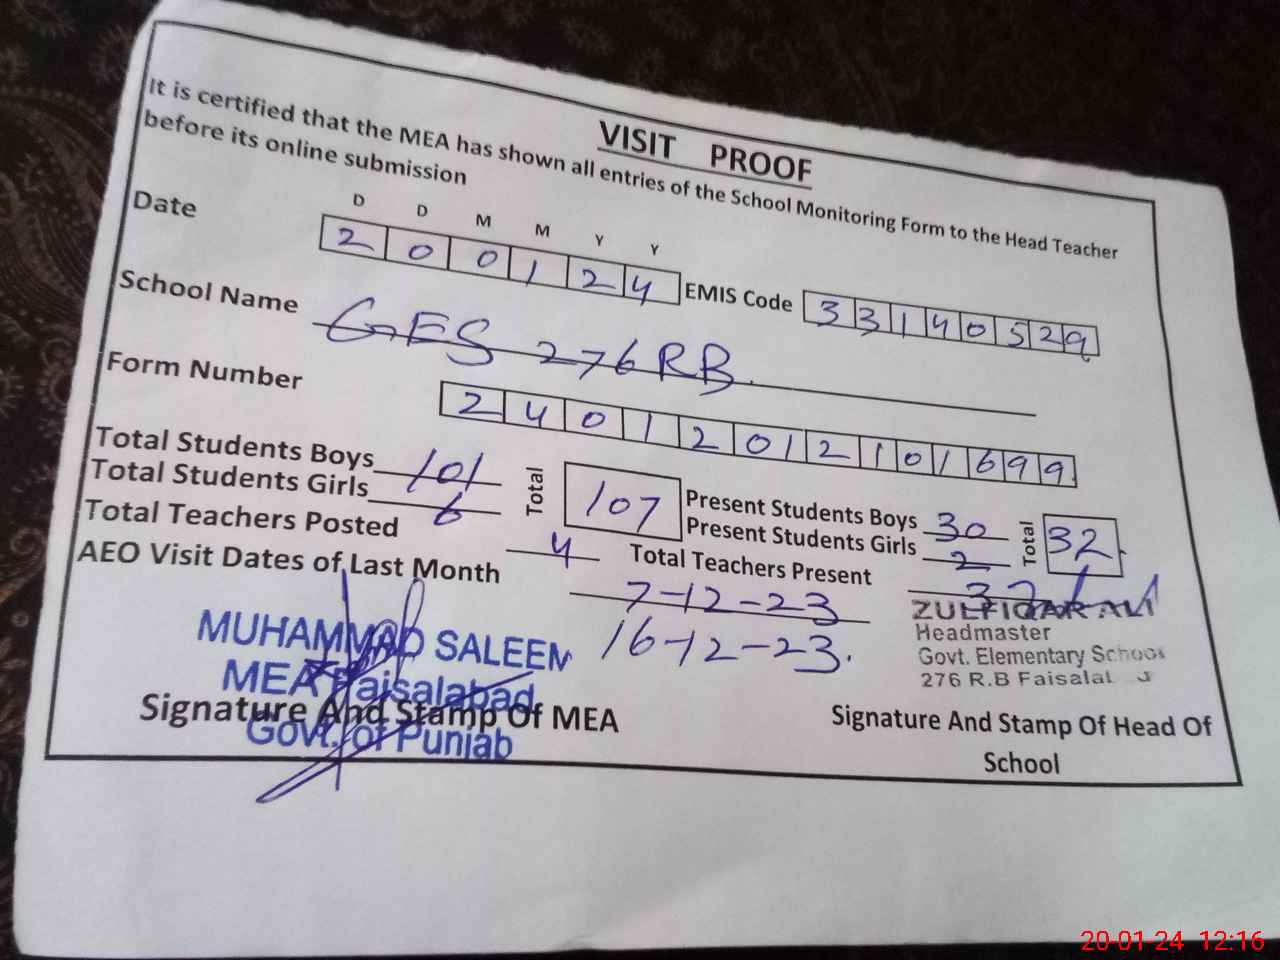 VISIT PROOF
It is certified that the MEA has shown all entries of the School Monitoring Form to the Head Teacher
before its online submission
D D M M Y Y
Date 2 0 0 1 2 4 EMIS Code 3 3 1 4 0 5 2 9
School Name GES 276 RB.
Form Number 2 4 0 1 2 0 1 2 1 0 1 6 9 9
Total Students Boys 101 Total 107 Present Students Boys 30 Total 32
Total Students Girls 6 Present Students Girls 2
Total Teachers Posted 4 Total Teachers Present 3
AEO Visit Dates of Last Month 7-12-23
16-12-23.
MUHAMMAD SALEEM
MEA Faisalabad
Govt. of Punjab
Signature And Stamp Of MEA
ZULFIQAR ALI
Headmaster
Govt. Elementary School
276 R.B
Signature And Stamp Of Head Of
School
20-01-24 12:16